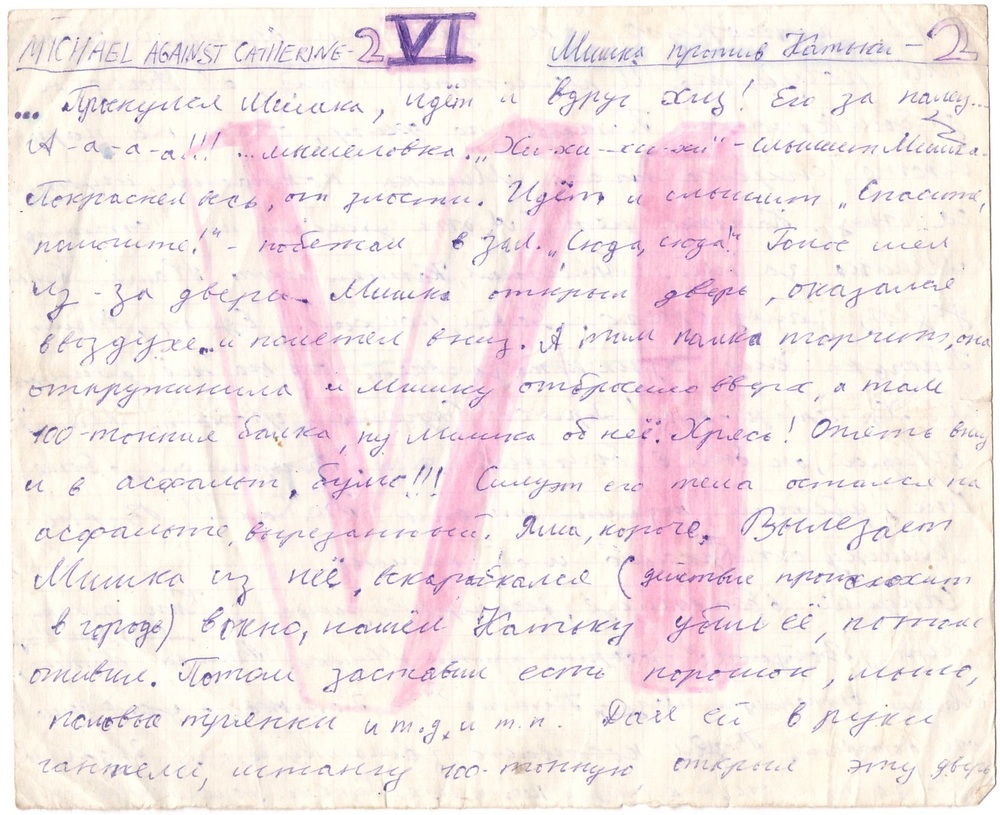 MICHAEL AGAINST CATHERINE-2 VI Мишка против Катьки-2
... Проснулся Мишка, идёт и вдруг хлц! Его за палец...
А-а-а-а!!! ...мышеловка. „Хи-хи-хи-хи" - слышит Мишка.
Покраснел весь, от злости. Идёт и слышит „Спасите,
помогите!" - побежал в зал. „Сюда, сюда!" Голос шёл
из-за двери... Мишка открыл дверь, оказался
ввоздухе... и полетел вниз. А там палка торчит, она
откружинила и Мишку отбросило вверх, а там
100-тонная балка, ну Мишка об неё. Хрясь! Опять вниз
и в асфальт, бумс!!! Силуэт его тела остался на
асфальте, вырезанный. Яма, короче. Вылезает
Мишка из неё, вскарабкался (действие происходит
в городе) в окно, нашёл Катьку убил её, потом
оживил. Потом заставил есть порошок, мыло,
половые тряпки и т.д. и т.п. Дал ей в руки
гантели, штангу 100-тонную открыл эту дверь